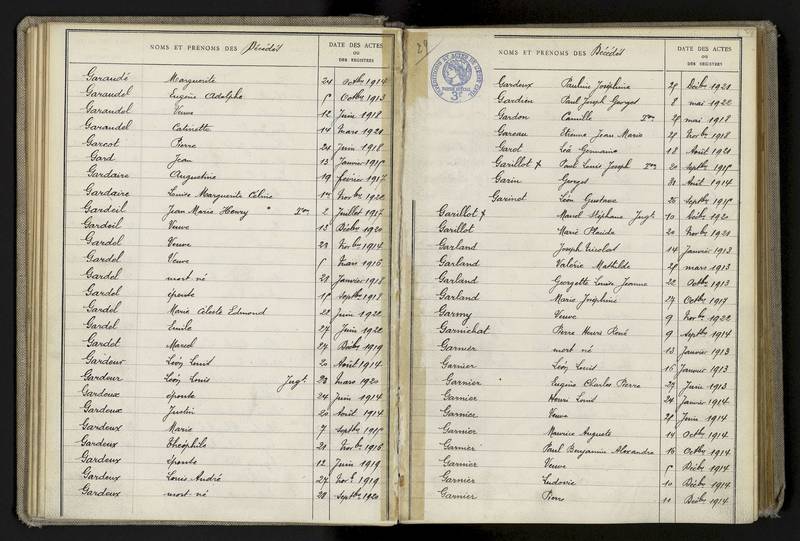 NOMS ET PRÉNOMS DES Décédés DATE DES ACTES
OU
DES REGISTRES
Garaudé Marguerite 24 Octbre 1914
Garaudel Eugène Adolphe Octbre 1913
Garaudel Veuve 12 Juin 1918
Garaudel Catinette 14 Mars 1920
Garcot Pierre 24 Juin 1918
Gard Jean 13 Janvier
Gardaire Augustine 19 février 1917
Gardaire Louise Marguerite Céline Novbre 1920
Gardeil Jean Marie Henry 2 Juillet 1917
Gardeil Veuve 13 Décbre 1920
Gardel Veuve 23 Novbre 1914
Gardel Veuve Mars 1916
Gardel mort-né 28 Janvier 1918
Gardel épouse Septbre 1918
Gardel Marie Céleste Edmond 22 Juin 1922
Gardel Emile 27 Juin 1922
Gardet Marcel 24 Décbre 1919
Gardeur Léon Louis 20 Août 1914
Gardeur Léon Louis Jugt 23 Mars 1920
Gardeux épouse 24 Juin 1914
Gardeux Justin 20 Août 1914
Gardeux Marie 7 Septbre
Gardeux Théophile 21 Novbre 1916
Gardeux épouse 12 Juin 1919
Gardeux Louis André 27 Novbre 1919
Gardeux mort-né 28 Septbre 1920
29
NOMS ET PRÉNOMS DES Décédés DATE DES ACTES
OU
DES REGISTRES
Gardeux Pauline Joséphine Décbre 1921
Gardien Paul Joseph Georges 8 mai 1922
Gardon Camille mai 1918
Gareau Etienne Jean Marie Novbre 1918
Garet Léa Germaine 18 Août 1920
Garillot x Paul Louis Joseph 20 Septbre
Garin Georges 31 Août 1914
Garinot Léon Gustave 26 Septbre
Garillot x Marcel Stéphane Jugt 10 1920
Garillot Marie Placide 20 Novbre 1920
Garland Joseph Nicolas 14 Janvier 1913
Garland Valérie Mathilde mars 1913
Garland Georgette Louise Jeanne 22 Octbre 1913
Garland Marie Joséphine 27 Octbre 1917
Garmy Veuve 9 Novbre 1922
Garnichat Pierre Henri René 9 Septbre 1914
Garnier mort né 13 Janvier 1913
Garnier Léon Louis 16 Janvier 1913
Garnier Eugène Charles Pierre 27 Juin 1913
Garnier Henri Louis 24 Janvier 1914
Garnier Veuve Juin 1914
Garnier Maurice Auguste 14 Octbre 1914
Garnier Paul Benjamin Alexandre 16 Octbre 1914
Garnier Veuve Décbre 1914
Garnier Ludovic 10 Décbre 1914
Garnier Pierre 11 Décbre 1914